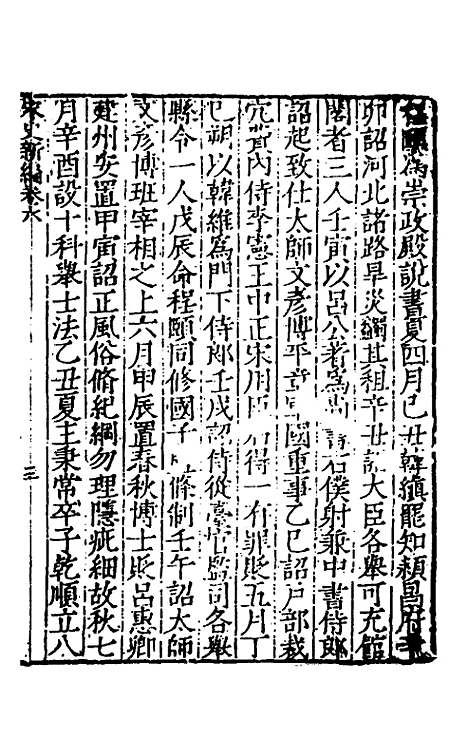 程頤為崇政殿說書夏四月己丑韓縝罷知潁昌府辛
卯詔河北諸路旱災蠲其租辛丑詔大臣各舉可充館
閣者三人壬寅以呂公著為尚書右僕射兼中書侍郎
詔起致仕太師文彥博平章軍國重事乙巳詔戶部裁
冗費內侍李憲王中正宋用臣石得一有罪貶五月丁
巳朔以韓維為門下侍郎壬戌詔侍從臺諫監司各舉
縣令一人戊辰命程頤同修國子監條制壬午詔太師
文彥博班宰相之上六月甲辰置春秋博士貶呂惠卿
建州安置甲寅詔正風俗脩紀綱勿理隱疵細故秋七
月辛酉設十科舉士法乙丑夏主秉常卒子乾順立八
宋史新編卷六
三